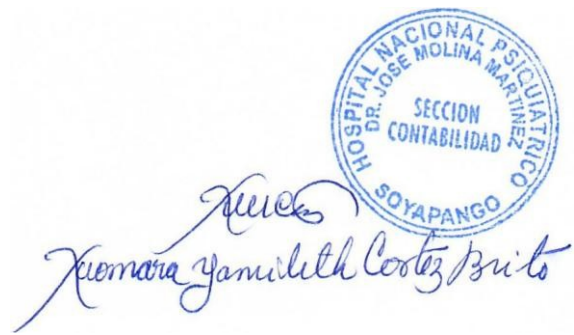 HOSPITAL NACIONAL PSIQUIATRICO
DR. JOSE MOLINA MARTINEZ
SECCION
CONTABILIDAD
SOYAPANGO
Xiomara Yamileth Cortez Brito